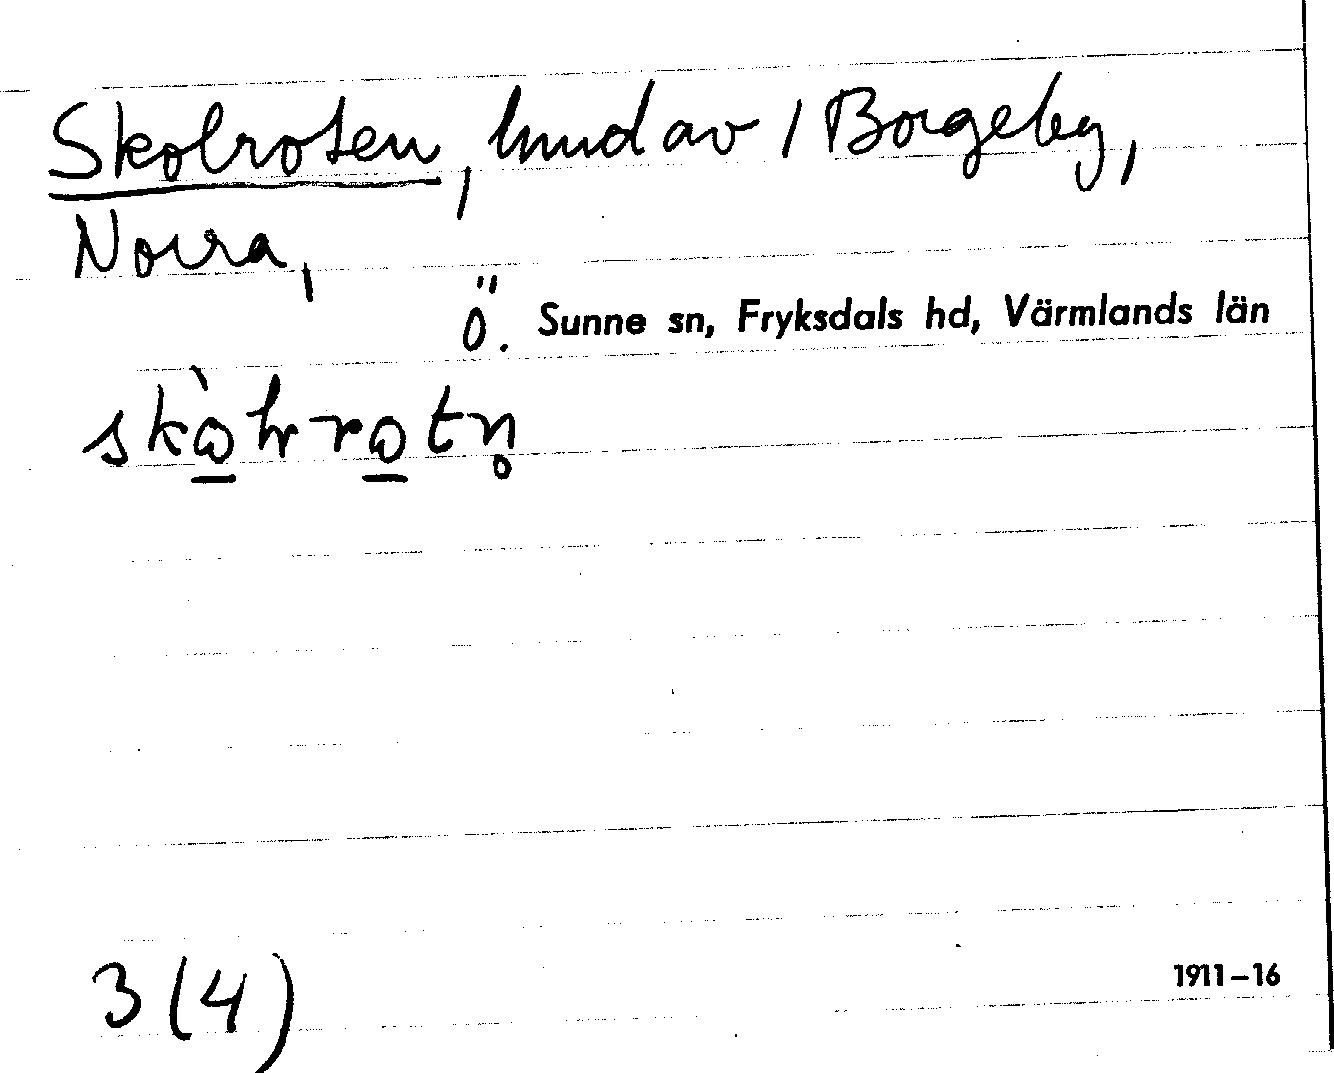 Skolroten, hmd av 1 Borgeby,
Norra,
Ö. Sunne sn, Fryksdals hd, Värmlands län
3 (4)
1911-16